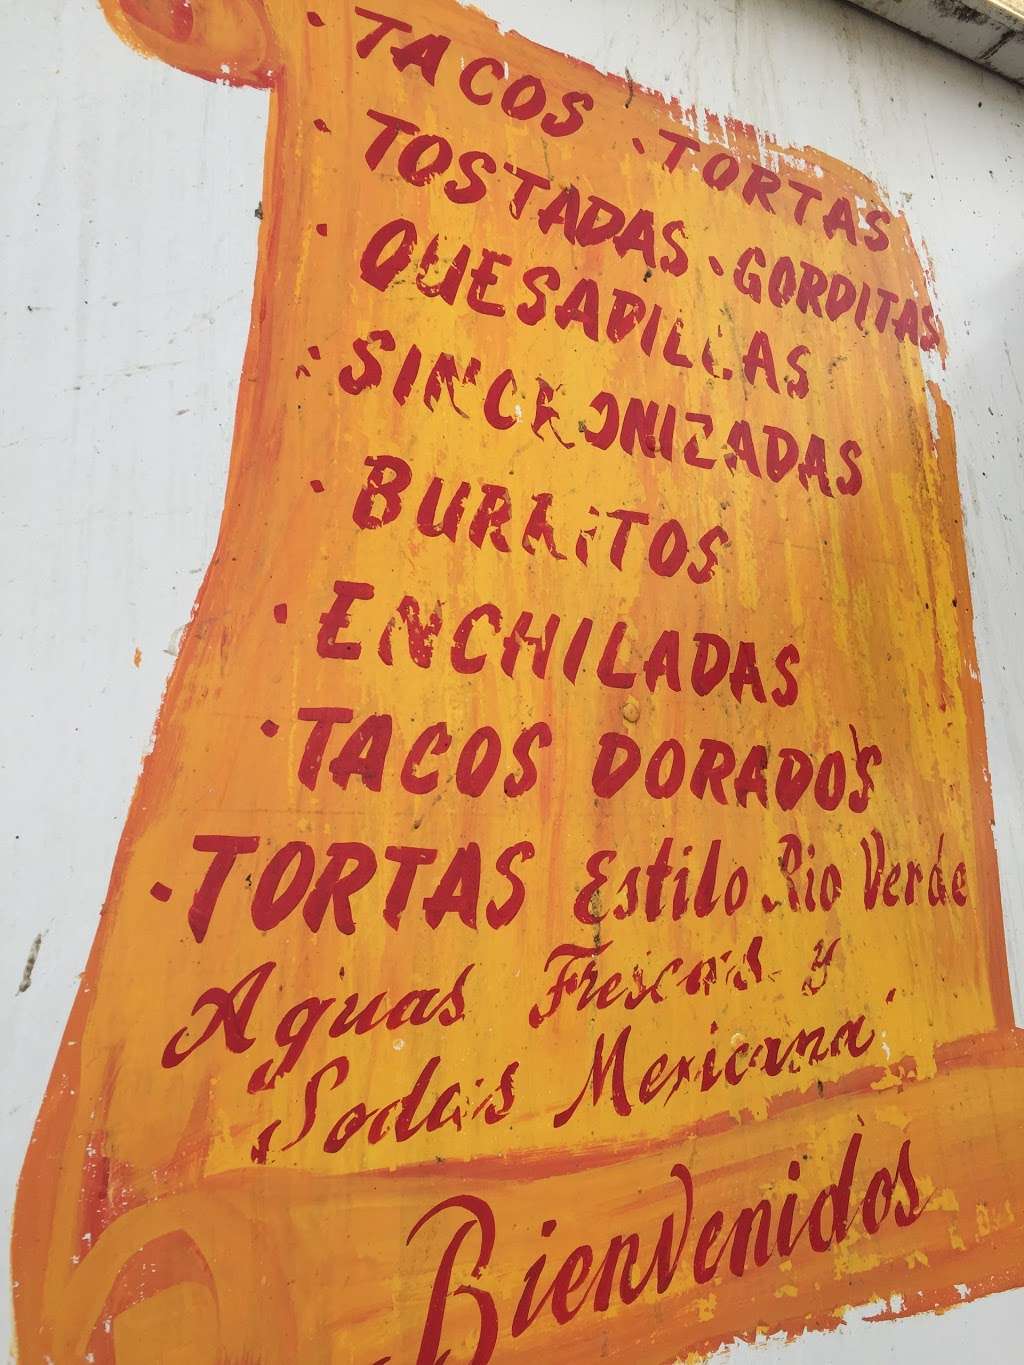 · TACOS · TORTAS
· TOSTADAS · GORDITAS
· QUESADILLAS
· SINCRONIZADAS
· BURRITOS
· ENCHILADAS
· TACOS DORADOS
· TORTAS Estilo Rio Verde
Aguas Frescas y
Sodas Mexicana
Bienvenidos